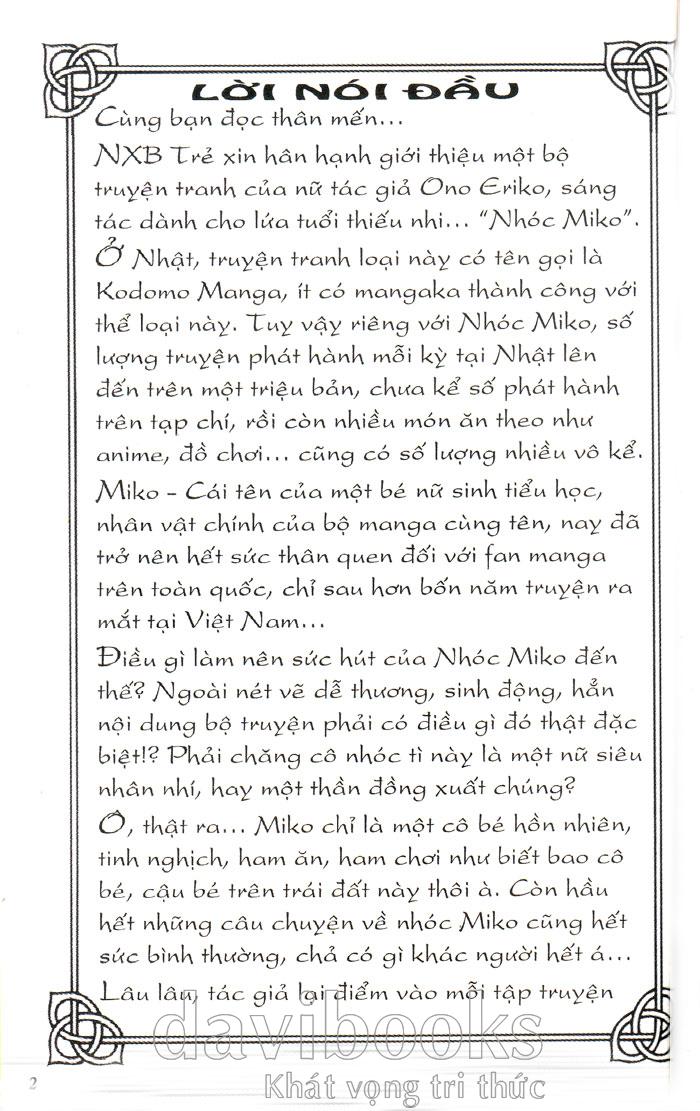 LỜI NÓI ĐẦU
Cùng bạn đọc thân mến...
NXB Trẻ xin hân hạnh giới thiệu một bộ
truyện tranh của nữ tác giả Ono Eriko, sáng
tác dành cho lứa tuổi thiếu nhi... “Nhóc Miko”.
Ở Nhật, truyện tranh loại này có tên gọi là
Kodomo Manga, ít có mangaka thành công với
thể loại này. Tuy vậy riêng với Nhóc Miko, số
lượng truyện phát hành mỗi kỳ tại Nhật lên
đến trên một triệu bản, chưa kể số phát hành
trên tạp chí, rồi còn nhiều món ăn theo như
anime, đồ chơi... cũng có số lượng nhiều vô kể.
Miko - Cái tên của một bé nữ sinh tiểu học,
nhân vật chính của bộ manga cùng tên, nay đã
trở nên hết sức thân quen đối với fan manga
trên toàn quốc, chỉ sau hơn bốn năm truyện ra
mắt tại Việt Nam...
Điều gì làm nên sức hút của Nhóc Miko đến
thế? Ngoài nét vẽ dễ thương, sinh động, hẳn
nội dung bộ truyện phải có điều gì đó thật đặc
biệt!? Phải chăng cô nhóc tì này là một nữ siêu
nhân nhí, hay một thần đồng xuất chúng?
Ô, thật ra... Miko chỉ là một cô bé hồn nhiên,
tinh nghịch, ham ăn, ham chơi như biết bao cô
bé, cậu bé trên trái đất này thôi à. Còn hầu
hết những câu chuyện về nhóc Miko cũng hết
sức bình thường, chả có gì khác người hết á...
Lâu lâu, tác giả lại điểm vào mỗi tập truyện
davibooks
Khát vọng tri thức
2